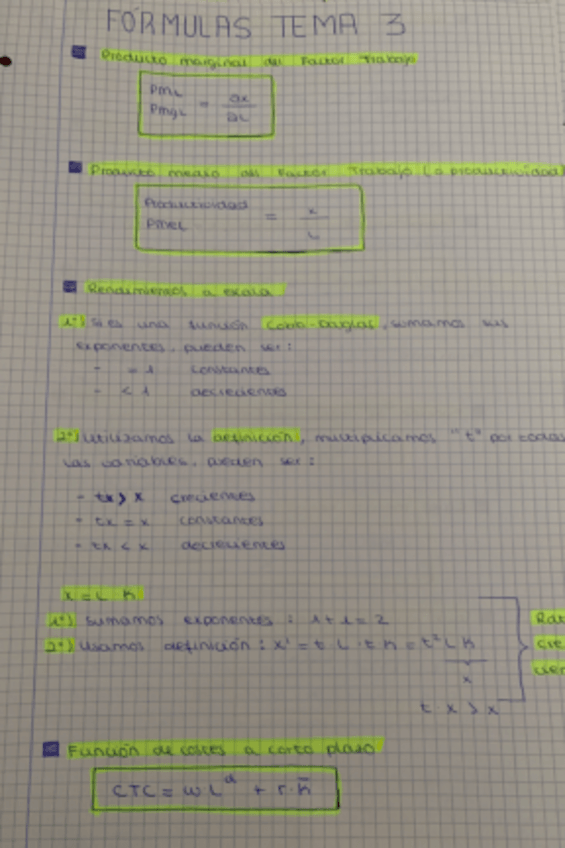 FÓRMULAS TEMA 3
Producto marginal del Factor Trabajo
PmL
PmgL = ∂x / ∂L
Producto medio del Factor Trabajo (o productividad)
Productividad
PmeL = x / L
Rendimientos a escala
1º) Si es una función Cobb-Douglas, sumamos sus
exponentes, pueden ser:
- = 1 constantes
- < 1 decrecientes
2º) Utilizamos la definición, multiplicamos "t" por todas
las variables, pueden ser:
- tx > x crecientes
- tx = x constantes
- tx < x decrecientes
x = L K
1º) Sumamos exponentes: 1+1=2
2º) Usamos definición: x' = t L · t K = t² L K
x
t · x > x
Función de costes a corto plazo
CTC = w L^d + r · K̄